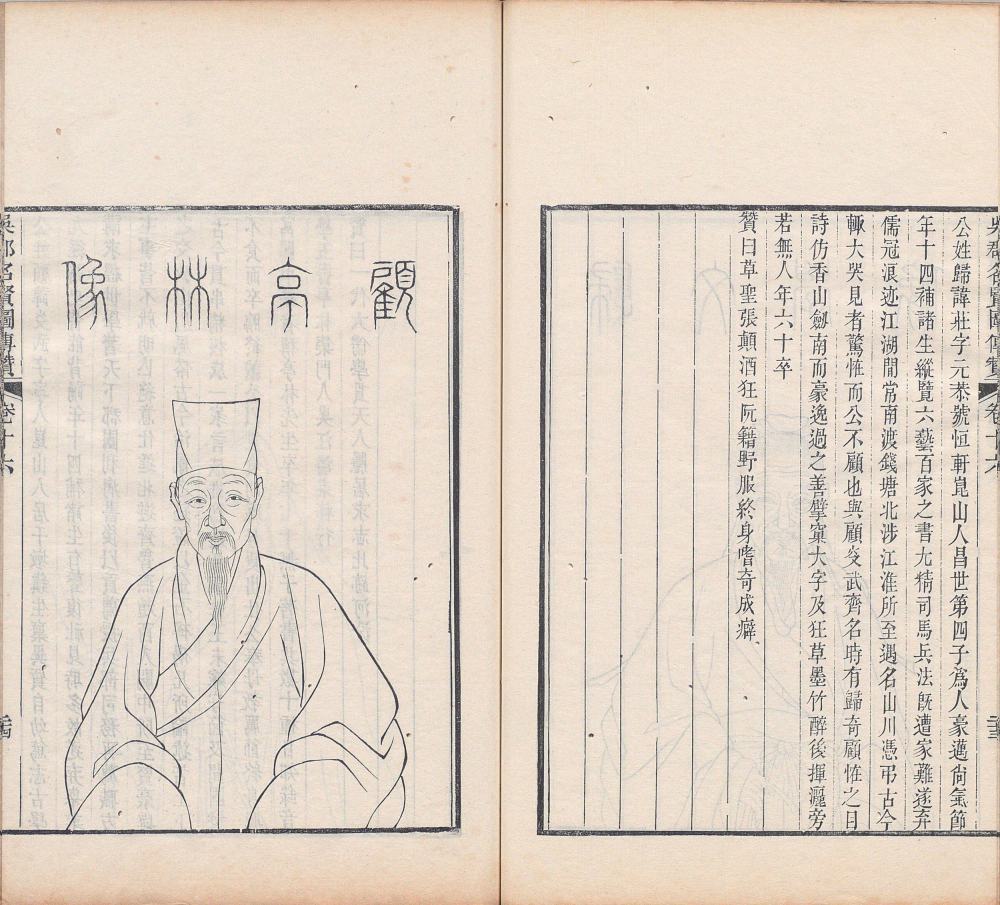 吳郡名賢圖傳贊 卷十六
公姓歸諱莊字元恭號恒軒崑山人昌世第四子爲人豪邁尙氣節
年十四補諸生縱覽六藝百家之書尤精司馬兵法旣遭家難遂弃
儒冠浪迹江湖閒常南渡錢塘北涉江淮所至遇名山川憑弔古今
輒大哭見者驚恠而公不顧也與顧炎武齊名時有歸奇顧恠之目
詩仿香山劒南而豪逸過之善擘窠大字及狂草墨竹醉後揮灑旁
若無人年六十卒
贊曰草聖張顛酒狂阮籍野服終身嗜奇成癖
顧亭林像
吳郡名賢圖傳贊 卷十六